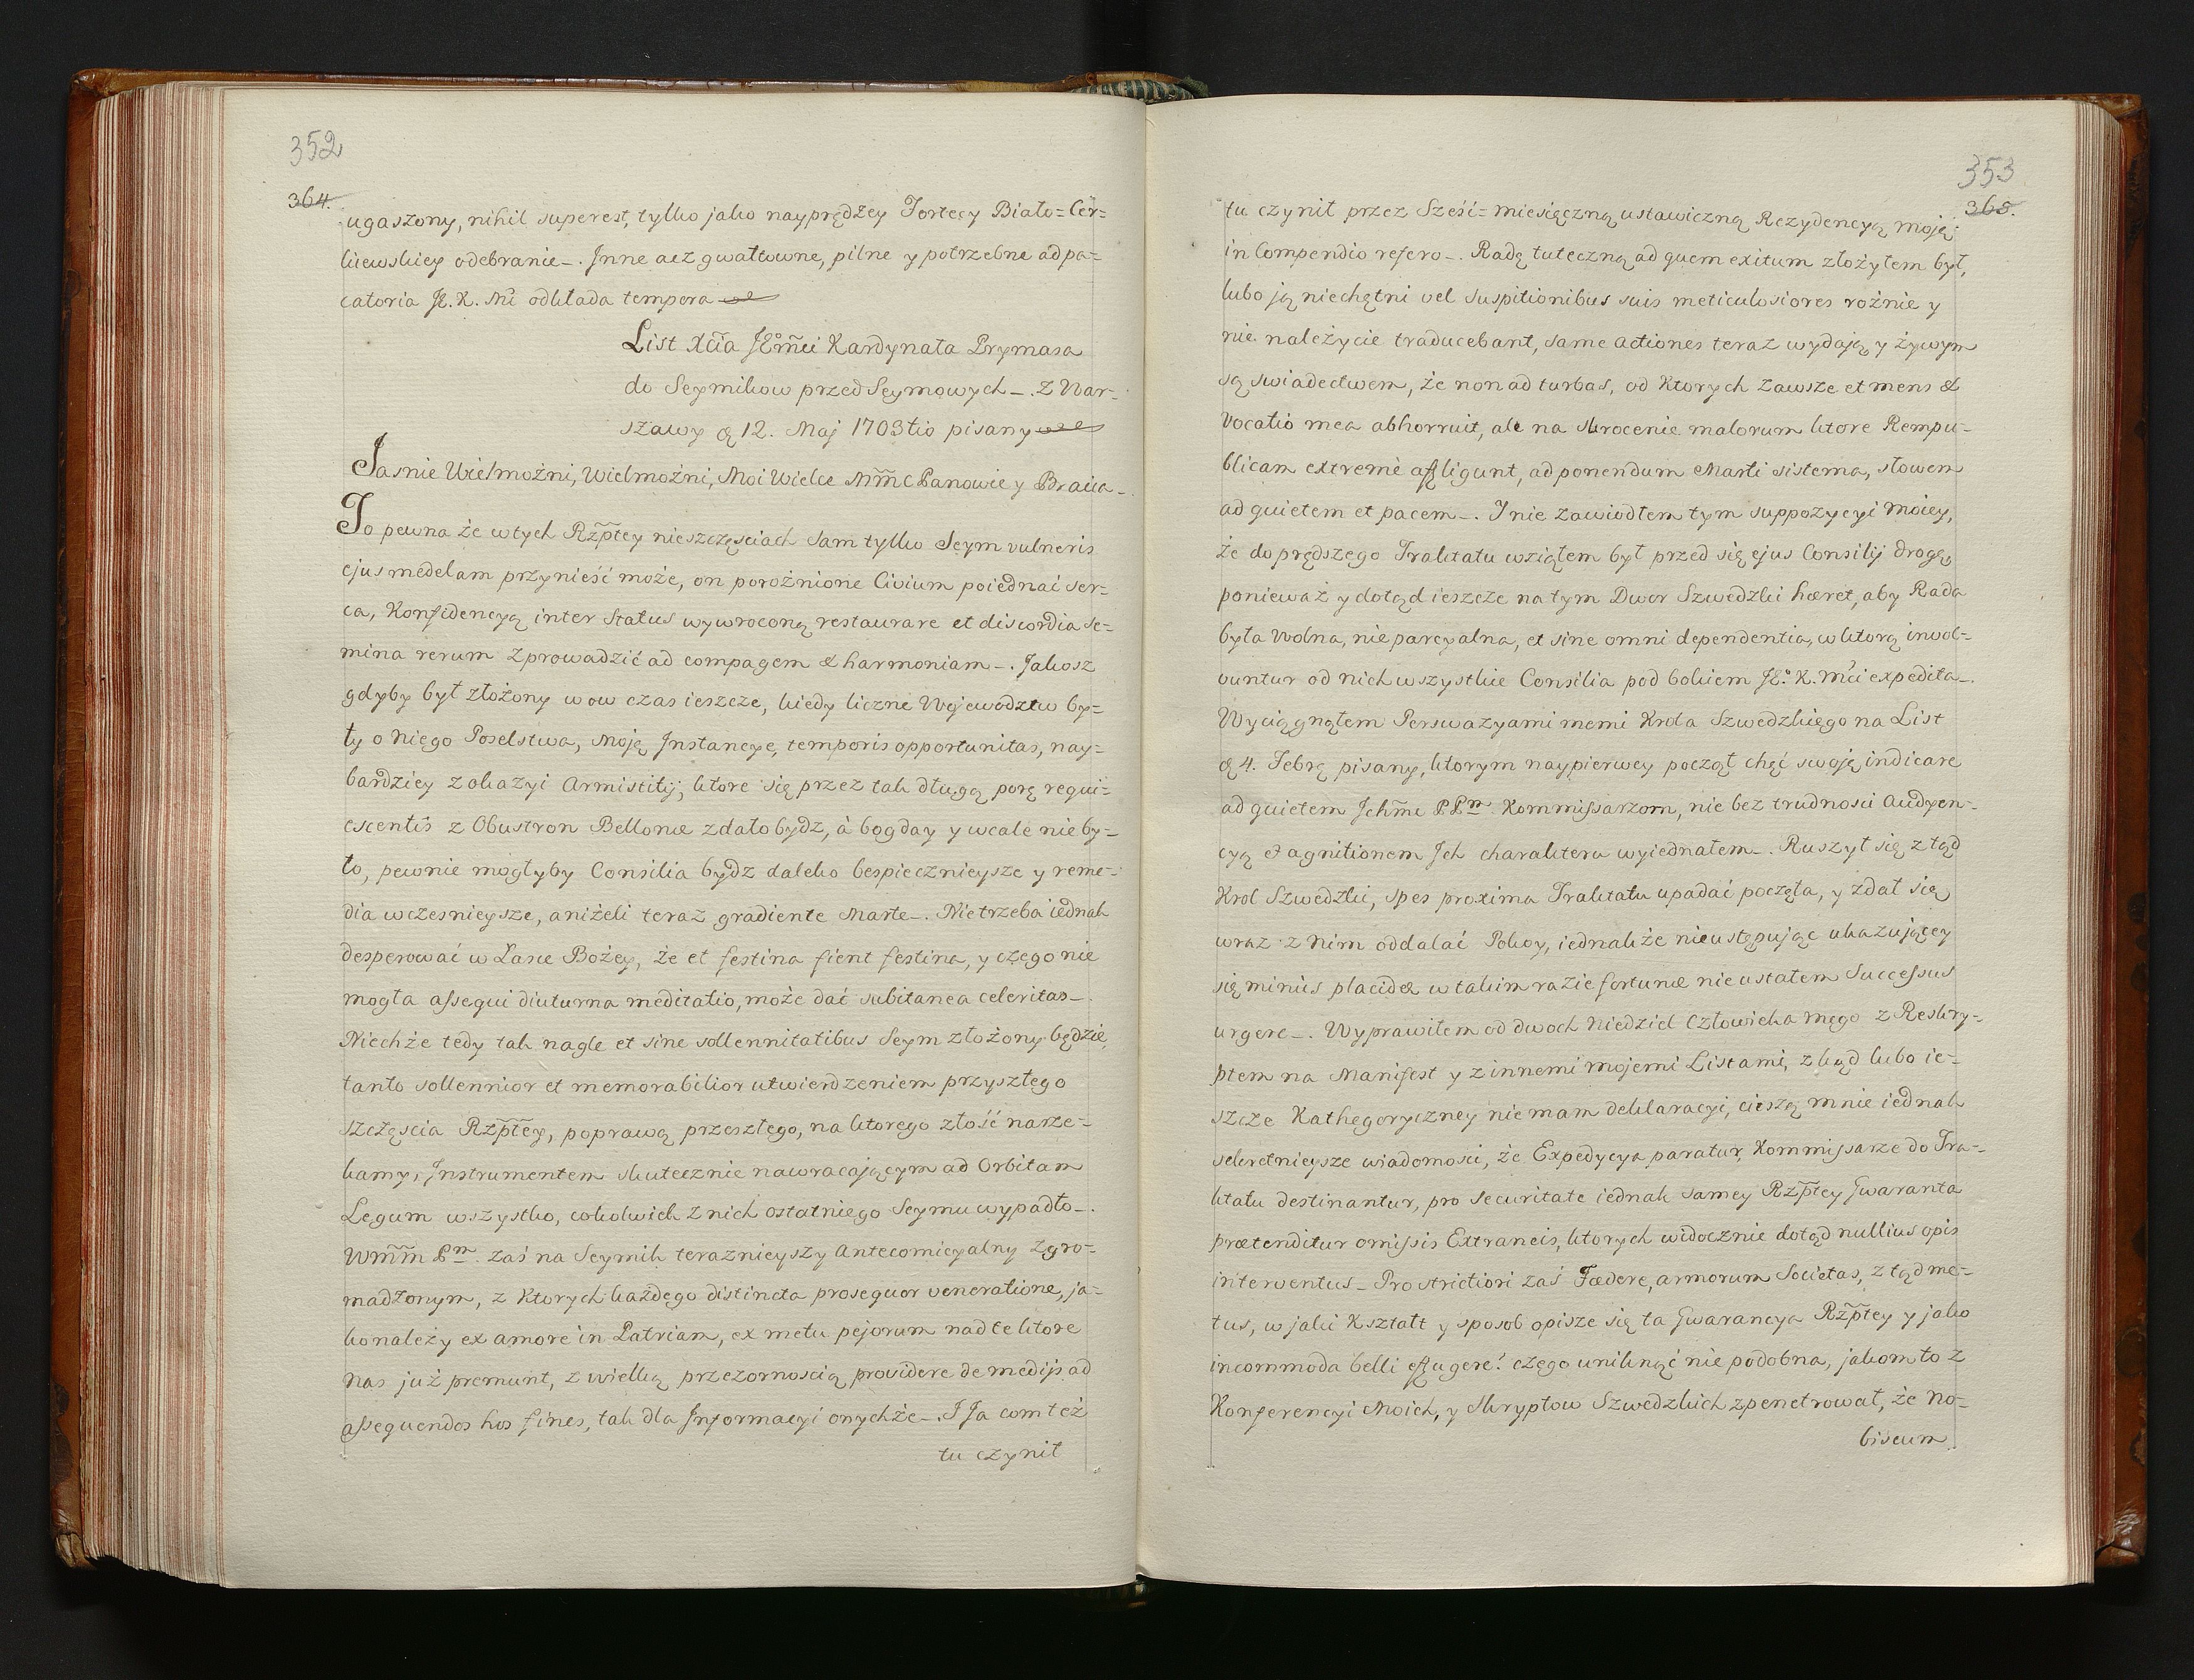 352
364.
ugaszony, nihil superest, tylko jako nayprędzey Fortecy Biało=Cer=
kiewskiey odebranie_. Inne acz gwałtowne, pilne y potrzebne ad pa=
catoria JE. K. Mći odkłada tempora
List Xcia JEo mći Kardynała Prymasa
do Seymikow przed Seymowych_. z War=
szawy d. 12. Maj 1703tio pisany
Jasnie Wielmożni, Wielmożni, Moi Wielce Mm̃ C Panowie y Bracia_.
To pewna że w tych Rzp̃tey nieszczęsciach sam tylko Seym vulneris
ejus medelam przynieść może, on porożnione Civium poiednać ser=
ca, Konfidencyą inter Status wywroconą restaurare et discordia se=
mina rerum zprowadzić ad compagem & harmoniam_. Jakosz
gdyby był złożony w ow czas ieszcze, kiedy liczne Wojewodztw by=
ły o niego Poselstwa, moję Instancye, temporis opportunitas, nay=
bardziey z okazyi Armistitij, ktore się przez tak długą porę requi=
escentis z Obustron Bellonæ zdało bydz, à bogday y wcale nie by=
ło, pewnie mogłyby Consilia bydz daleko bespiecznieysze y reme=
dia wczesnieysze, aniżeli teraz gradiente Marte_. Nie trzeba iednak
desperować w Łasce Bożey, że et festina fient festina, y czego nie
mogła assequi diuturna meditatio, może dać subitanea celeritas_.
Niechże tedy tak nagle et sine sollennitatibus Seym złożony będzie,
tanto sollennior et memorabilior utwierdzeniem przyszłego
szczęscia Rzp̃tey, poprawą przeszłego, na ktorego złość narze=
kamy, Instrumentem skutecznie nawracającym ad Orbitam
Legum wszystko, cokolwiek z nich ostatniego Seymu wypadło_.
Wm̃m Pm. zaś na Seymik teraznieyszy Antecomicyalny zgro=
madzonym, z Ktorych każdego distincta prosequor veneratione, ja=
ko należy ex amore in Patriam, ex metu pejorum nad te ktore
nas już premunt, z wielką przezornoscią providere de medijs ad
assequendos hos fines, tak dla Informacyi onychże_. I Ja com też
tu czynił
353
365.
tu czynił przez Sześć=miesięczną ustawiczną Rezydencyą moję
in Compendio refero_. Radę tuteczną ad quem exitum złożyłem był,
lubo ją niechętni vel suspitionibus suis meticulosiores rożnie y
nie należycie traducebant, same actiones teraz wydają, y żywym
są swiadectwem, że non ad turbas, od Ktorych zawsze et mens &
Vocatio mea abhorruit, ale na skrocenie malorum ktore Rempu=
blicam extremè affligunt, ad ponendum Marti sistema, słowem
ad quietem et pacem_. I nie zawiodłem tym suppozycyi moiey,
że do prędszego Traktatu wziąłem był przed się ejus Consilij drogę,
ponieważ y dotąd ieszcze na tym Dwor Szwedzki hæret, aby Rada
była wolna, nie parcyalna, et sine omni dependentia, w ktorą invol=
vuntur od nich wszystkie Consilia pod bokiem JEo K. Mći expedita_.
Wyciągnąłem Perswazyami memi Krola Szwedzkiego na List
d. 4. Febrę pisany, ktorym naypierwey począł chęć swoję indicare
ad quietem Jchm̃ PPm Kommissarzom, nie bez trudnosci Audyen=
cyą & agnitionem Jch charaktera wyiednałem_. Ruszył się z tąd
Krol Szwedzki, spes proxima Traktatu upadać poczęła, y zdał się
wraz z nim oddalać Pokoy, iednakże nieustępując ukazującey
się minùs placidæ w takim razie fortunæ nie ustałem Successus
urgere_. Wyprawiłem od dwoch Niedziel Człowieka mego z Reskry=
ptem na Manifest y z innemi mojemi Listami, z kąd lubo ie=
szcze Kathegoryczney nie mam deklaracyi, cieszą mnie iednak
sekretnieysze wiadomosci, że Expedycya paratur, Kommissarze do Tra=
ktatu destinantur, pro securitate iednak samey Rzp̃tey Gwaranta
prætenditur omissis Extraneis, ktorych widocznie dotąd nullius opis
interventus_ Pro strictiori zaś Fœdere, armorum Societas, z tąd me=
tus, w jaki Kształt y sposob opisze się ta Gwarancya Rzp̃tey y jako
incommoda belli effugere! czego uniknąć nie podobna, jakom to z
Konferencyi Moich, y Skryptow Szwedzkich zpenetrował, że No=
biscum